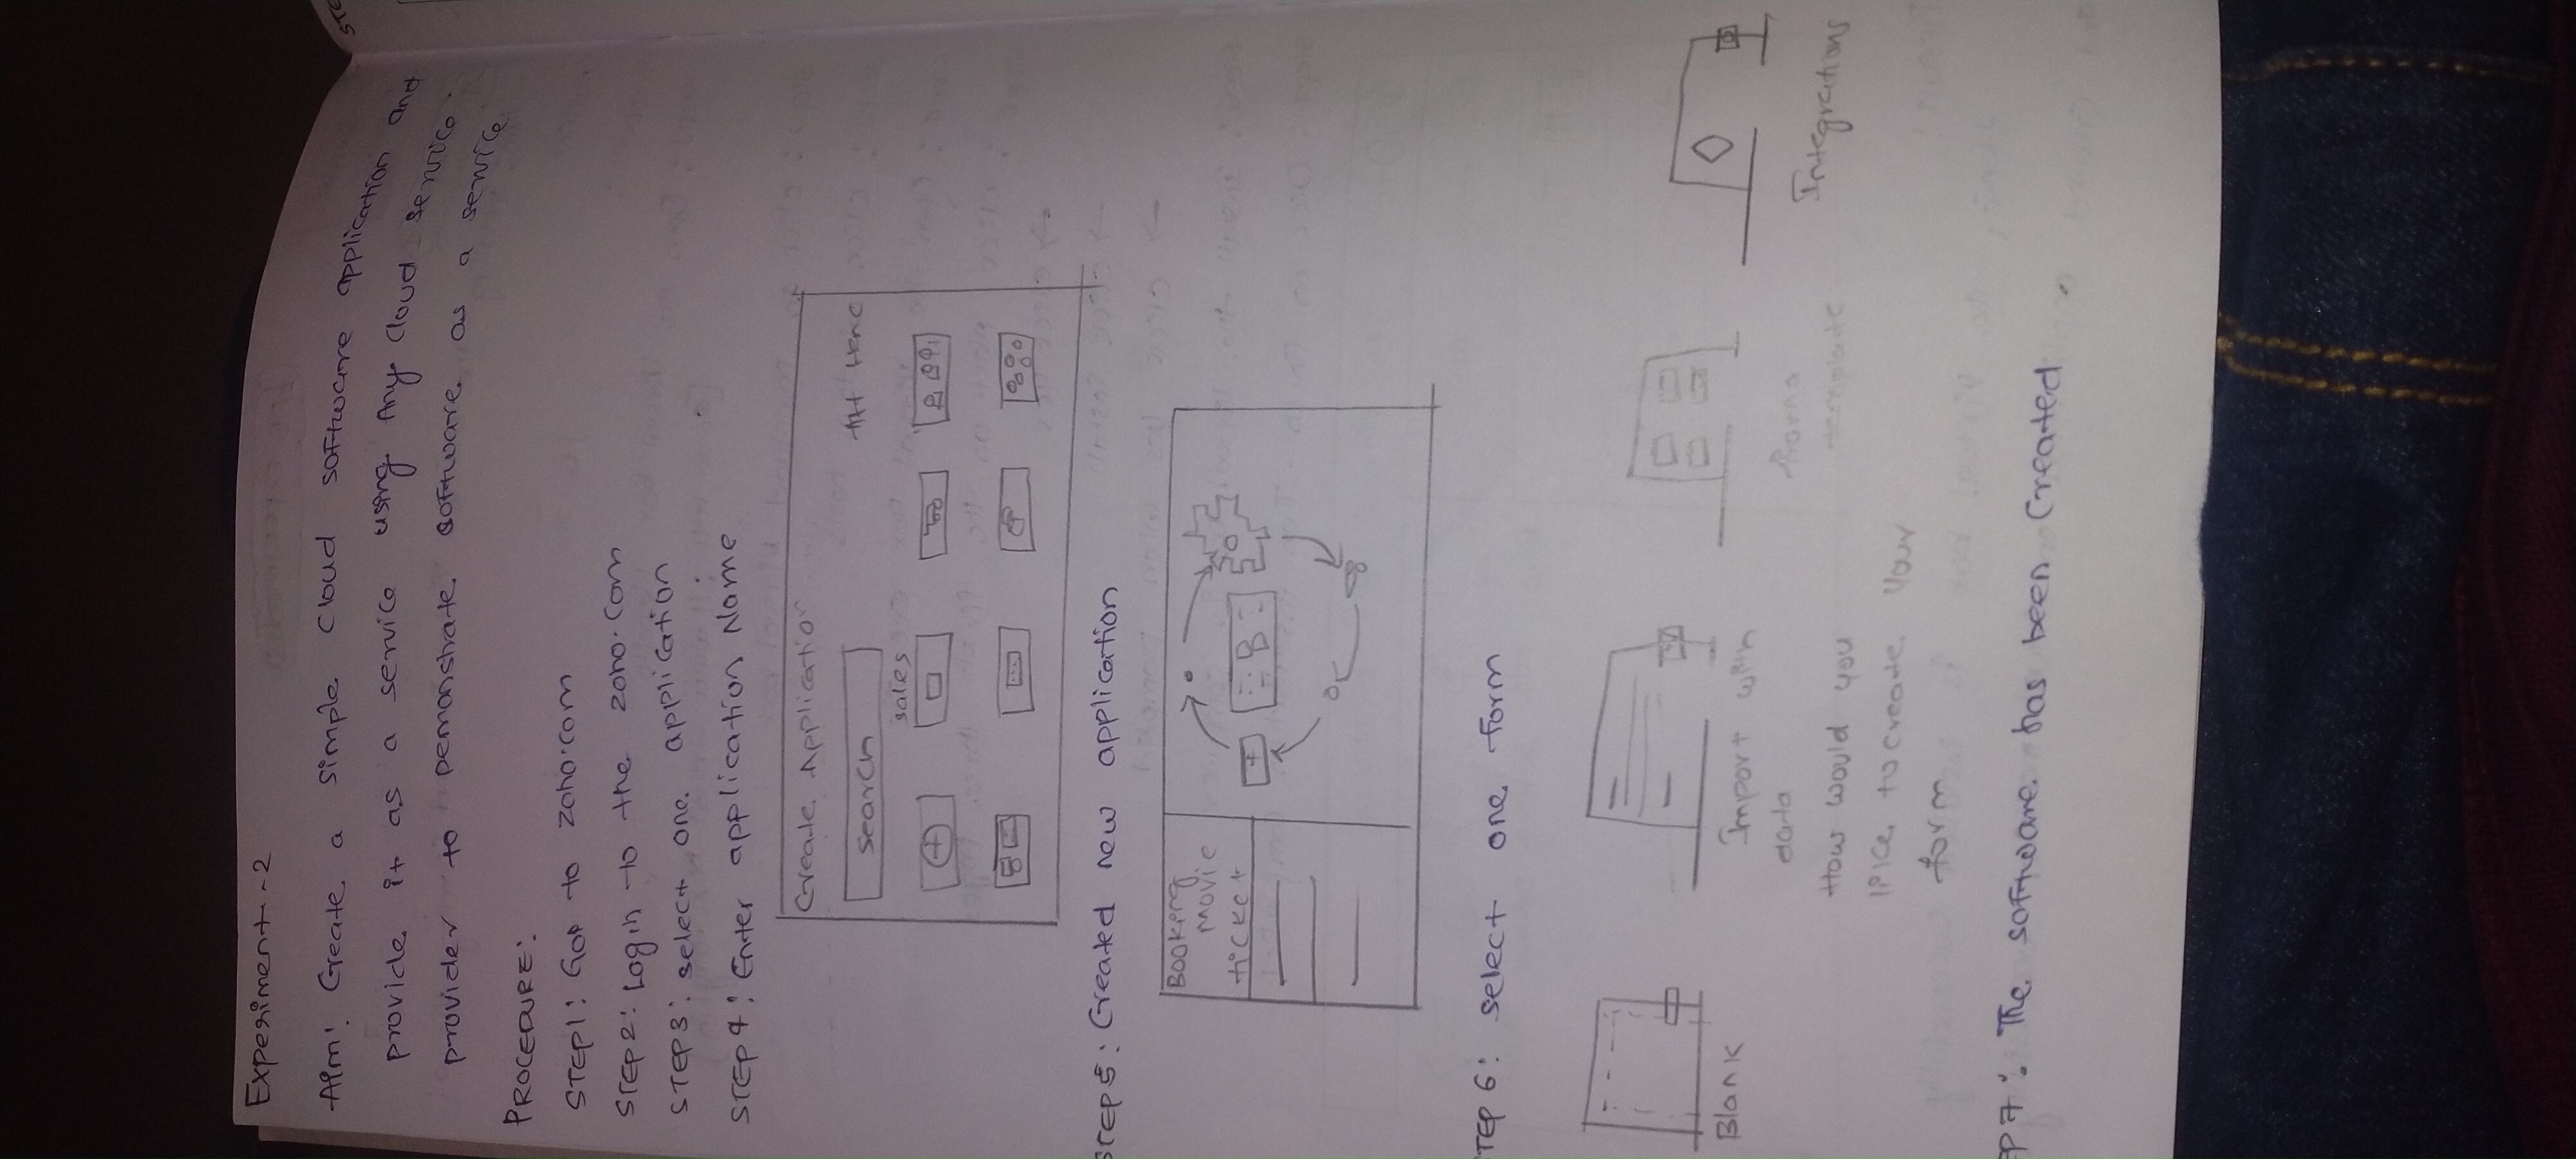 Experiment-2
AIm: Create a simple cloud software application and
provide it as a service using Any cloud service
provider to Demonstrate software as a service
PROCEDURE:
STEP1: Got to zoho.com
STEP2: Login to the zoho.com
STEP3: select one application
STEP4: Enter application Name
Create Application
Search
sales
STEP5: Created new application
Booking
Movie
ticket
B
STEP 6: select one form
Blank
Import with
data
template
Integrations
How would you
like to create your
form
EP7: The software has been Created